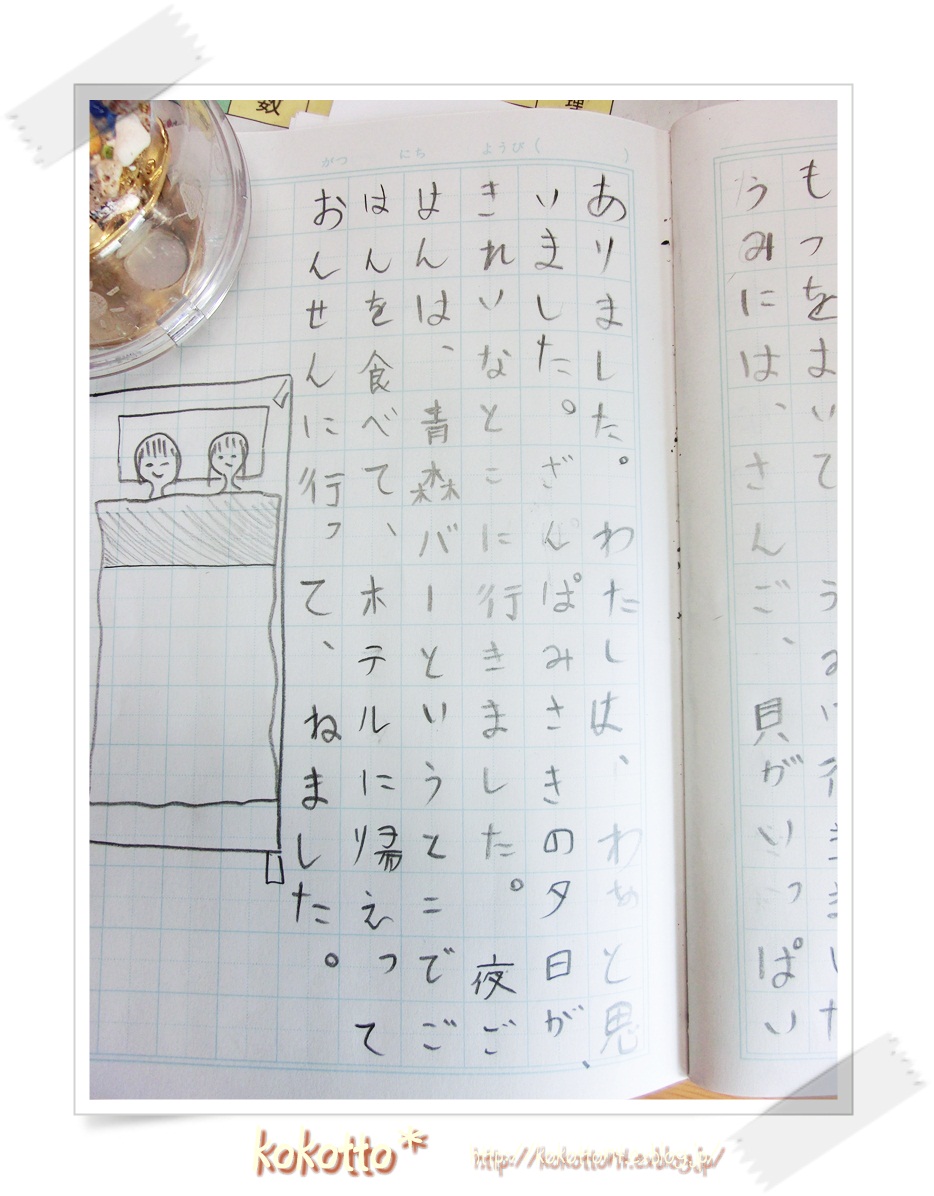 数
理
がつ　にち　ようび（　　）
もっをまいて
うみには、さんご、貝がいっぱい
ありました。わたしは、わあと思
いました。ざんぱみさきの夕日が、
きれいなとこに行きました。夜ご
はんは、青森バーというとこでご
はんを食べて、ホテルに帰えって
おんせんに行って、ねました。
kokotto*